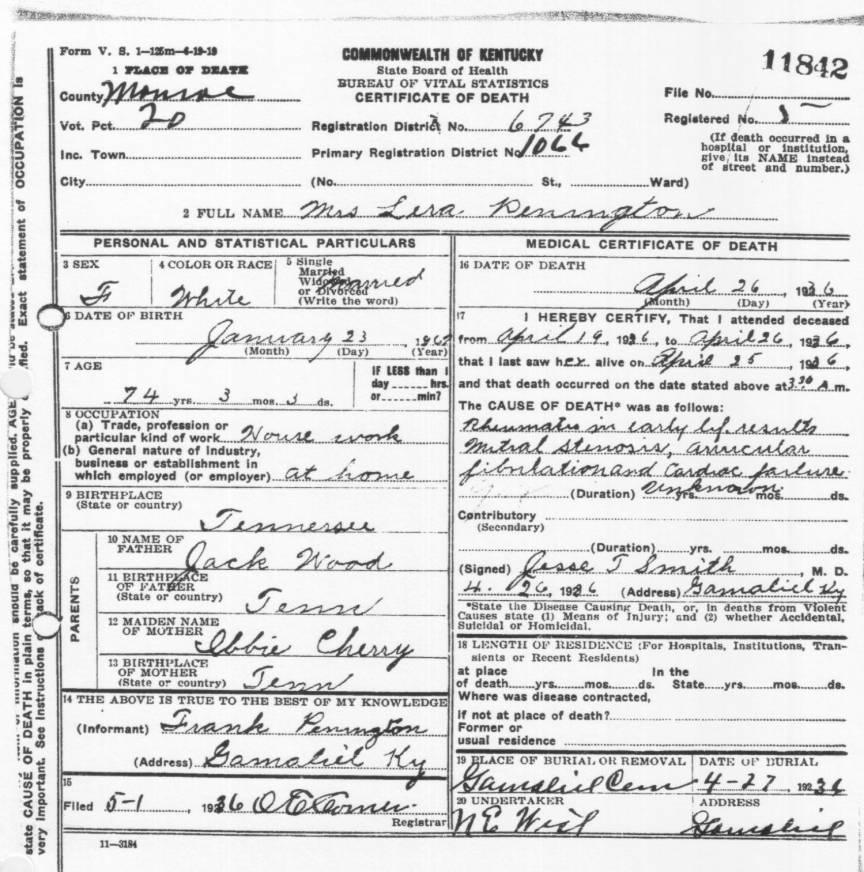 Form V. S. 1—125m—6-19-19
COMMONWEALTH OF KENTUCKY
State Board of Health
BUREAU OF VITAL STATISTICS
CERTIFICATE OF DEATH
11842
1 PLACE OF DEATH
County Monroe
File No.
Vot. Pct. 20
Registration District No. 6743
Registered No.
Inc. Town
Primary Registration District No 1066
(If death occurred in a hospital or institution, give its NAME instead of street and number.)
City (No. St., Ward)
2 FULL NAME Mrs Lera Penington
PERSONAL AND STATISTICAL PARTICULARS
3 SEX
F
4 COLOR OR RACE
White
5 Single
Married
Widowed
or Divorced
(Write the word)
6 DATE OF BIRTH
January 23
(Month) (Day) (Year)
7 AGE
74 yrs. 3 mos. 3 ds.
IF LESS than 1
day hrs.
or min?
8 OCCUPATION
(a) Trade, profession or
particular kind of work House work
(b) General nature of industry,
business or establishment in
which employed (or employer) at home
9 BIRTHPLACE
(State or country)
Tennersee
PARENTS
10 NAME OF
FATHER
Jack Wood
11 BIRTHPLACE
OF FATHER
(State or country)
Tenn
12 MAIDEN NAME
OF MOTHER
Ibbie Cherry
13 BIRTHPLACE
OF MOTHER
(State or country)
Tenn
14 THE ABOVE IS TRUE TO THE BEST OF MY KNOWLEDGE
(Informant) Frank Penington
(Address) Gamaliel Ky
15
Filed 5-1, 1936
Registrar
11—3184
MEDICAL CERTIFICATE OF DEATH
16 DATE OF DEATH
April 26, 1936
(Month) (Day) (Year)
17 I HEREBY CERTIFY, That I attended deceased
from April 19, 1936, to April 26, 1936,
that I last saw her alive on April 25, 1936,
and that death occurred on the date stated above at 3.30 A m.
The CAUSE OF DEATH* was as follows:
Rheumatis in early lif results
mitral stenosis, auricular
fibrulation and cardiac failure
(Duration) unknown yrs. mos. ds.
Contributory
(Secondary)
(Duration) yrs. mos. ds.
(Signed) Jesse T Smith, M. D.
4. 26, 1936 (Address) Gamaliel Ky
*State the Disease Causing Death, or, in deaths from Violent
Causes state (1) Means of Injury; and (2) whether Accidental,
Suicidal or Homicidal.
18 LENGTH OF RESIDENCE (For Hospitals, Institutions, Tran-
sients or Recent Residents)
at place In the
of death yrs. mos. ds. State yrs. mos. ds.
Where was disease contracted,
if not at place of death?
Former or
usual residence
19 PLACE OF BURIAL OR REMOVAL
Gamaliel Cem
DATE OF BURIAL
4-27, 1936
20 UNDERTAKER
N E West
ADDRESS
Gamaliel
information should be carefully supplied. AGE
Exact statement of OCCUPATION is
state CAUSE OF DEATH in plain terms, so that it may be properly
very important. See instructions back of certificate.